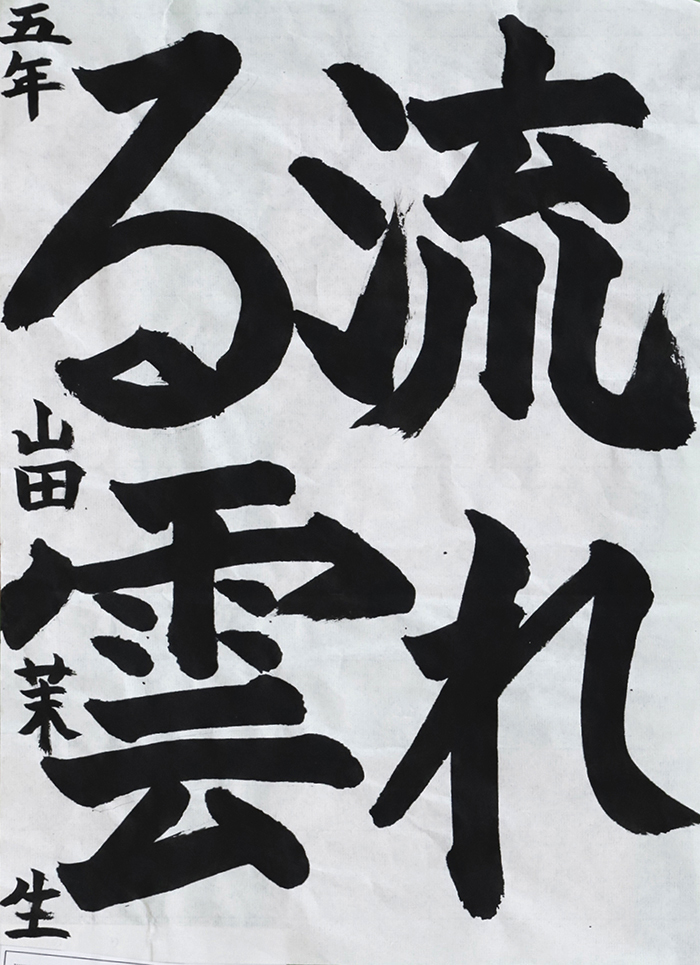 流れ
る雲
五年 山田茉生